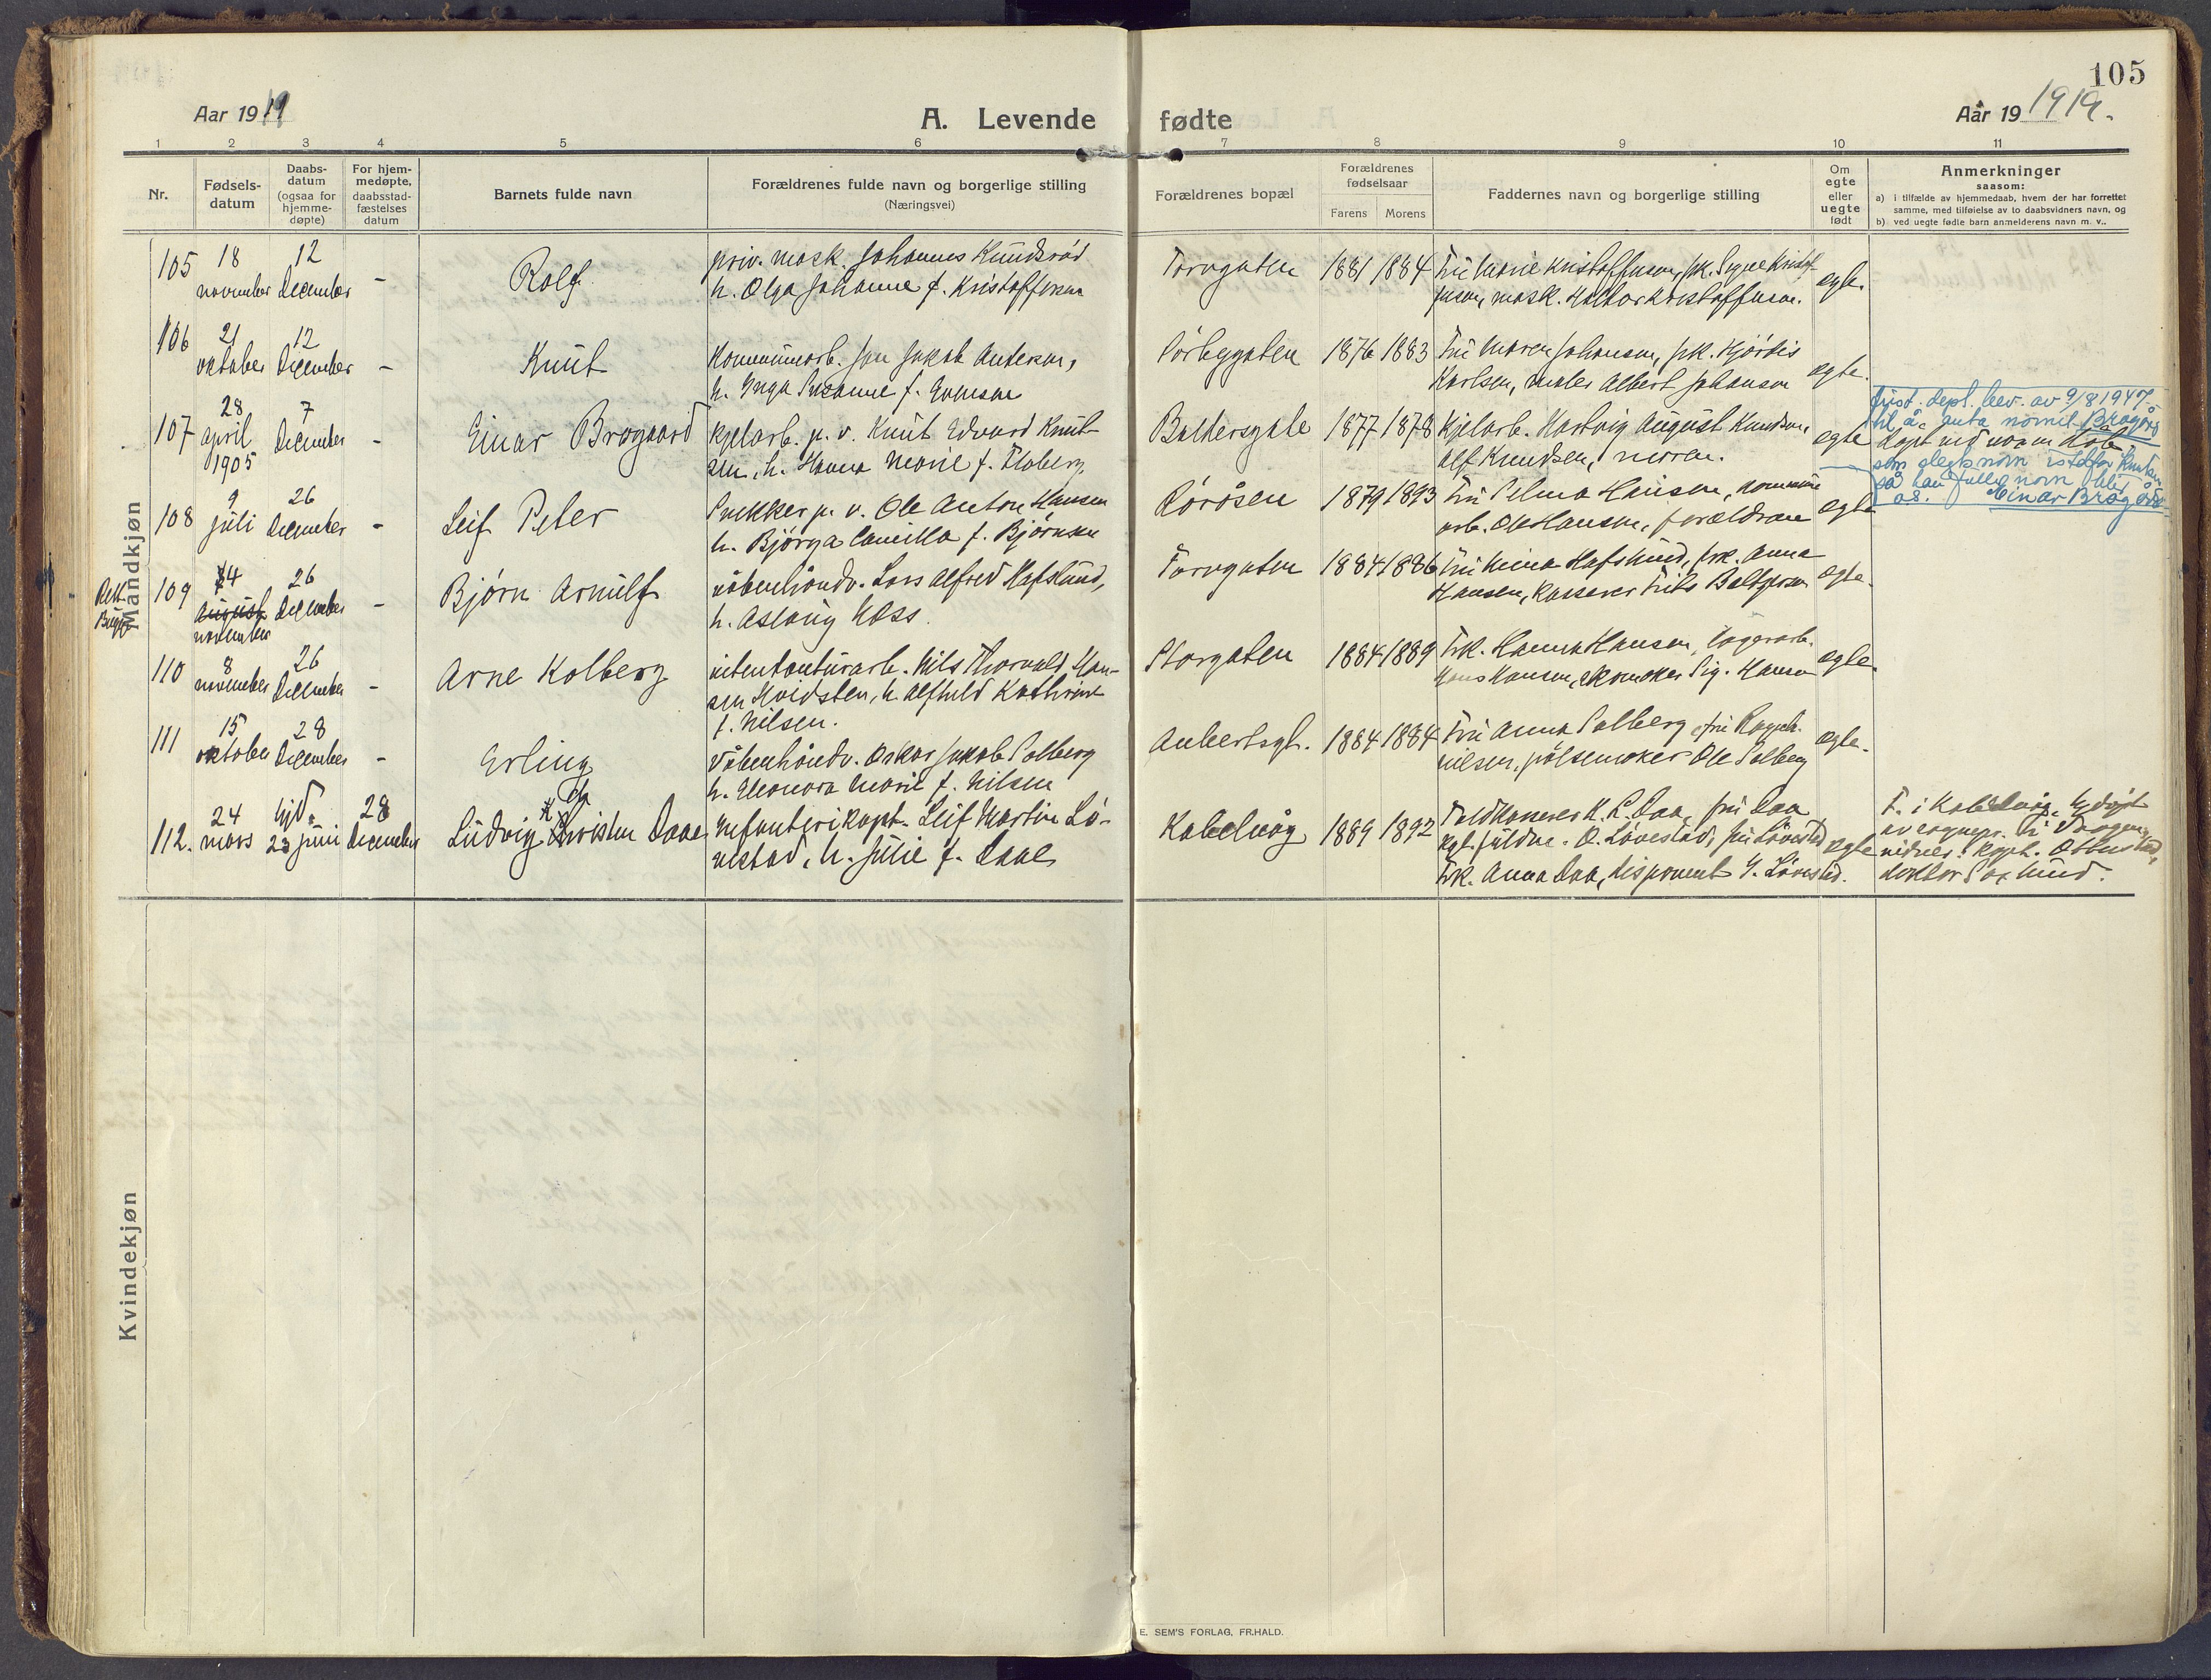 105
Aar 1919
A. Levende fødte
Aar 19 1919.
1 2 3 4 5 6 7 8 9 10 11
Nr.
Fødsels-
datum
Daabs-
datum
(ogsaa for
hjemme-
døpte)
For hjem-
medøpte,
daabsstad-
fæstelses
datum
Barnets fulde navn
Forældrenes fulde navn og borgerlige stilling
(Næringsvei)
Forældrenes bopæl
Forældrenes
fødselsaar
Farens Morens
Faddernes navn og borgerlige stilling
Om
egte
eller
uegte
født
Anmerkninger
saasom:
a) i tilfælde av hjemmedaab, hvem der har forrettet
samme, med tilføielse av to daabsvidners navn, og
b) ved uegte fødte barn anmelderens navn m. v..
Mandkjøn
105 18 november 12 December - Rolf
priv. mask. Johannes Knudsrød
h. Olga Johanne f. Kristoffersen
Torvgaten 1881 1884
Fru Marie Kristoffersen, frk. Signe Kristof-
fersen, mask. Kristoffersen.
egte.
106 21 oktober 12 December - Knut
Kommunearb. Jakob Andersen,
h. Inga Susanne f. Evensen
1876 1883
Fru Maren Johansen, frk. Hjørdis
Karlsen, maler Albert Johansen
egte.
107 28 april 1905 7 December - Einar Bragaard
p. v. Knut Edvard Knut-
sen, h. Hanna Marie f. Floberg
Baldersgate 1877 1878
Kjelarb. Hartvig August Knudsen,
Alf Knudsen, moren.
egte
Just. dept. bev. av 9/8 1947
til å anta navnet Brågårds
som slektsnavn istedfor Knutsen
så han fulle navn blir
Einar Brågårds
108 9 juli 26 December - Leif Peter
p. v. Ole Anton Hansen
h. Bjørga Camilla f. Bjørnsen
Røråsen 1879 1893
Fru Selma Hansen, kommune
arb. Ole Hansen, forældrene
egte
109 14 august november 26 December - Bjørn Arnulf
våbenhåndv. Lars Alfred Hafslund,
h. Aslaug Hass.
Torvgaten 1884 1886
Fru Mina Hafslund, frk. Anna
Hansen, Kasserer Frits Baltzersen
egte.
110 8 november 26 December - Arne Kolberg
intendanturarb. Nils Thorvald Han-
sen Hvidsten, h. Alfhild Kathrine
f. Nilsen.
Storgaten 1884 1889
Frk. Hanna Hansen, lagerarb.
Hans Hansen, skomaker Sig. Hansen
egte.
111 15 oktober 28 December - Erling
Våbenhåndv. Oskar Jakob Solberg
h. Eleonora Marie f. Nilsen
Aubertsgt. 1884 1884
Fru Anna Solberg, fru Ragnh.
Nilsen, pølsemaker Ole Solberg
egte.
112. 24 mars hjd. 23 juni 28 December Ludvig Kristen Daae
Infanterikapt. Leif Martin Lø-
vestad, h. Julie f. Daae
Kabelvåg 1889 1892
Toldkasserer K. L. Daa, fru Daa
O. Løvestad, fru Løvestad
Frk. Anna Daa, disponent G. Løvestad.
egte
F. i Kabelvåg, hjdøpt
av sognepr. i Vågen,
vidner: Kapt.
doktor
Kvindekjøn
E. SEM'S FORLAG, FR.HALD.